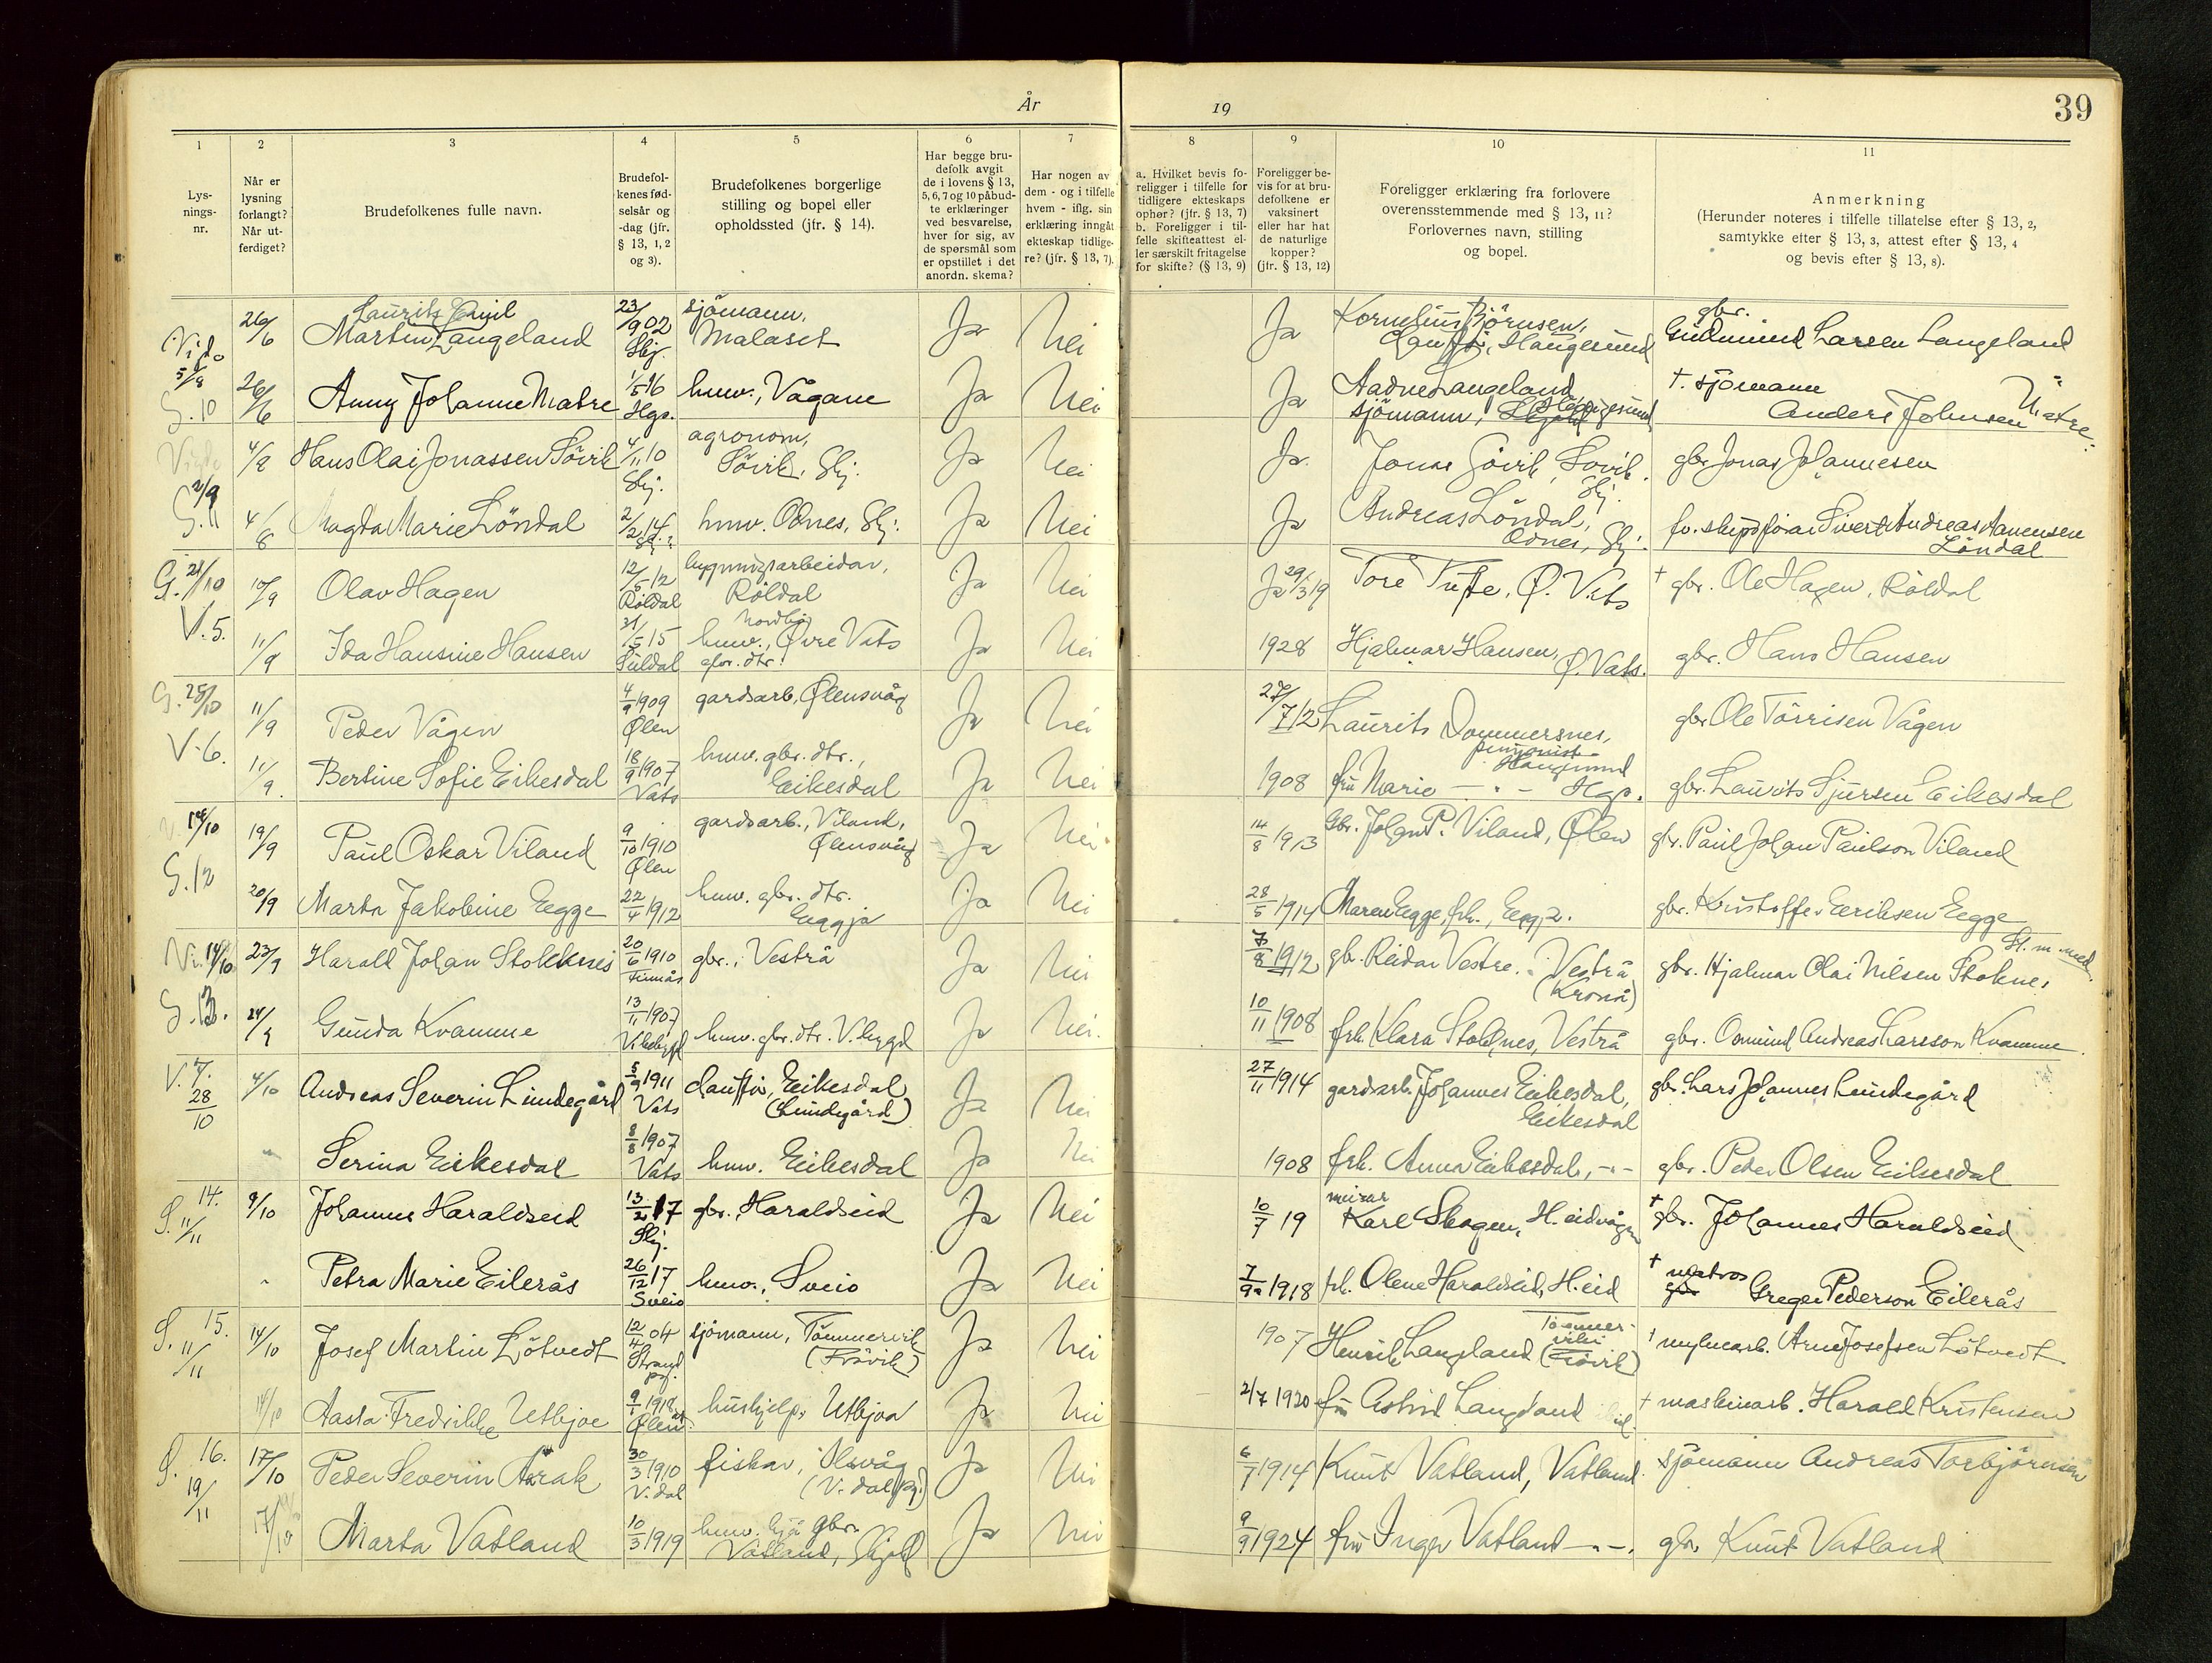 År 19
39
1 2 3 4 5 6 7 8 9 10 11
Lys-
nings-
nr.
Når er
lysning
forlangt?
Når ut-
ferdiget?
Brudefolkenes fulle navn.
Brudefol-
kenes fød-
selsår og
-dag (jfr.
§ 13, 1, 2
og 3).
Brudefolkenes borgerlige
stilling og bopel eller
opholdssted (jfr. § 14).
Har begge bru-
defolk avgit
de i lovens § 13,
5, 6, 7 og 10 påbud-
te erklæringer
ved besvarelse,
hver for sig, av
de spørsmål som
er opstillet i det
anordn. skema?
Har nogen av
dem - og i tilfelle
hvem - iflg. sin
erklæring inngåt
ekteskap tidlige-
re? (jfr. § 13, 7).
a. Hvilket bevis fo-
religger i tilfelle for
tidligere ekteskaps
ophør? (jfr. § 13, 7)
b. Foreligger i til-
felle skifteattest el-
ler særskilt fritagelse
for skifte? (§ 13, 9)
Foreligger be-
vis for at bru-
defolkene er
vaksinert
eller har hat
de naturlige
kopper?
(jfr. § 13, 12)
Foreligger erklæring fra forlovere
overensstemmende med § 13, 11?
Forlovernes navn, stilling
og bopel.
Anmerkning
(Herunder noteres i tilfelle tillatelse efter § 13, 2,
samtykke efter § 13, 3, attest efter § 13, 4
og bevis efter § 13, 8).
26/6 Laurits Emil
Martin Langeland 23/9 02 Skj. sjömann, Malaset Ja Nei Ja Kornelius Björnsen, Haugesund gbr. Gudmund Larsen Langeland
5/8 G. 10 26/6 Anny Johanne Matre 1/5 16 Hgs. husv., Vågane Ja Nei Ja Aadne Langeland sjömann, Haugesund † sjömann Anders Johnsen Matre.
4/8 Hans Olai Jonassen Sövik 4/11 10 Skj. agronom, Sövik, Skj. Ja Nei Ja Jonas Sövik, Sövik, Skj. gbr Jonas Johannesen
2/9 G. 11 4/8 Magda Marie Löndal 2/2 14 husv. Odnes, Skj. Ja Nei Ja Andreas Löndal, Odnes, Skj. fv. skipsförar Sivert Andreas Aanensen Löndal
G. 21/10 10/9 Olav Hagen 12/5 12 Röldal bygningsarbeidar, Röldal Ja Nei Ja 29/3 19 Tore Trefte, Ø. Vats † gbr. Ole Hagen, Röldal
V. 5. 11/9 Ida Hansine Hansen 31/5 15 Suldal husv., Øvre Vats gbr. dtr. Ja Nei 1928 Hjalmar Hansen, Ø. Vats. gbr. Hans Hansen
G. 25/10 11/9 Peder Vågen 4/9 1909 Ølen gardsarb, Ølensvåg Ja Nei 27/7 12 Laurits Dommersnes, pensjonist Haugesund gbr Ole Törrisen Vågen
V. 6. 11/9. Bertine Sofie Eikesdal 18/9 1907 Vats husv. gbr. dtr., Eikesdal Ja Nei 1908 fru Marie -"- Hgs. gbr. Laurits Sjursen Eikesdal
V. 14/10 19/9 Paul Oskar Viland 9/10 1910 Ølen gardsarb., Viland, Ølensvåg Ja Nei 14/8 1913 Gbr. Johan P. Viland, Ølen gbr. Paul Johan Paulson Viland
G. 12 20/9 Marta Jakobine Eegge 22/4 1912 husv. gbr. dtr. Eggja Ja Nei 28/5 1914 Maren Eegge, frk., Eggja. gbr. Kristoffer Eriksen Eegge
14/10 23/9 Harald Johan Stokknes 20/6 1910 Finnås gbr., Vestrå Ja Nei 7/8 1912 gbr. Reidar Vestre, Vestrå gbr. Hjalmar Olai Nilsen Stoknes
G. 13. 24/9 Gunda Kvamme 13/11 1907 husv. gbr. dtr. V. bygd Ja Nei. 10/11 1908 frk. Klara Stoknes, Vestrå gbr. Osmund Andreas Larsson Kvamme.
V. 7. 28/10 4/10 Andreas Severin Lundegård 5/9 1911 Vats Eikesdal (Lundegård) Ja Nei 27/11 1914 gardsarb. Johannes Eikesdal, Eikesdal gbr. Lars Johannes Lundegård
-"- Serina Eikesdal 8/8 1907 Vats husv. Eikesdal Ja Nei 1908 frk. Anna Eikesdal, -"- gbr. Peder Olsen Eikesdal
14. S. 11/11 9/10 Johannes Haraldseid 13/2 17 Skj. gbr., Haraldseid Ja Nei 10/7 19 murar Karl Skogen, H.eidvågen † gbr. Johannes Haraldseid
" Petra Marie Eilerås 26/12 17 Sveio husv., Sveio Ja Nei 7/9 1918 frk. Olene Haraldseid, H.eid † matros Greger Pederson Eilerås
15. S. 11/11 14/10 Josef Martin Lötvedt 12/4 04 Strand sjömann, Tömmervik Ja Nei 1907 Henrik Langeland † Arne Josefsen Lötvedt
14/10 Aasta Fredrikke Utbjoe 1918 Ølen hushjelp, Utbjoa Ja Nei 2/7 1920 fru Astrid Langeland † maskinarb. Harald Kristensen
16. S. 19/11 17/10 Peder Severin Årak 30/3 1910 V. dal fiskar, Ja Nei 6/7 1914 Knut Vatland, Vatland. sjömann Andreas Torbjörnsen
17/10 Marta Vatland 10/3 1919 husv. hjå gbr. Vatland, Skjold Ja Nei 9/9 1924 fru Inger Vatland -"-. gbr. Knut Vatland